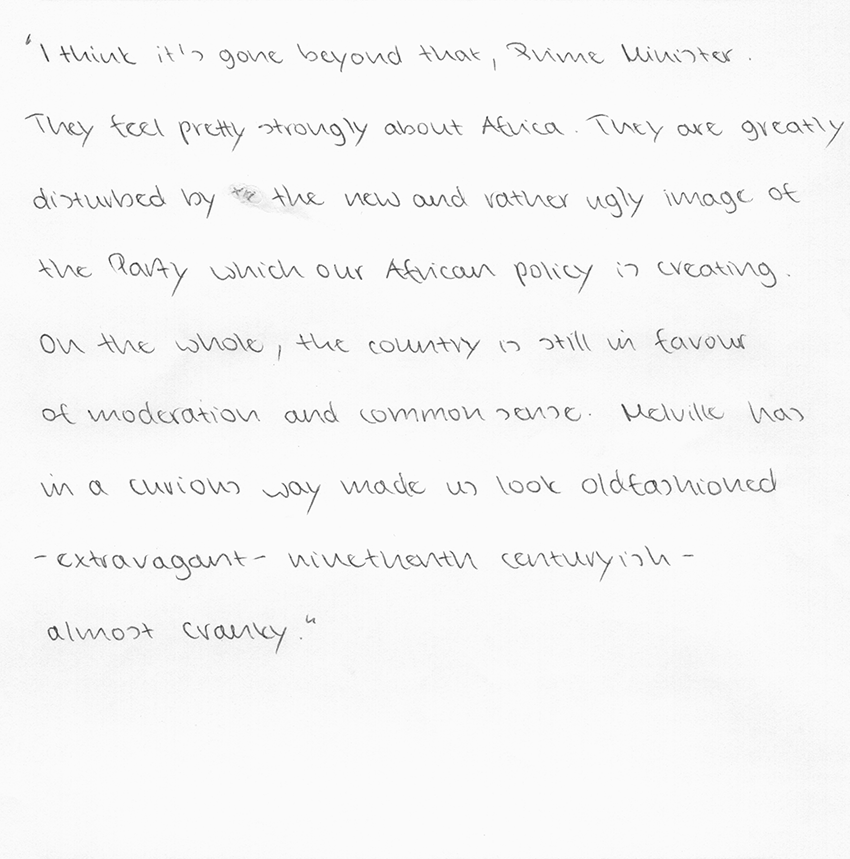 "I think it's gone beyond that, Prime Minister.
They feel pretty strongly about Africa. They are greatly
disturbed by the new and rather ugly image of
the Party which our African policy is creating.
On the whole, the country is still in favour
of moderation and common sense. Melville has
in a curious way made us look oldfashioned
-extravagant- ninetheenth centuryish-
almost cranky."